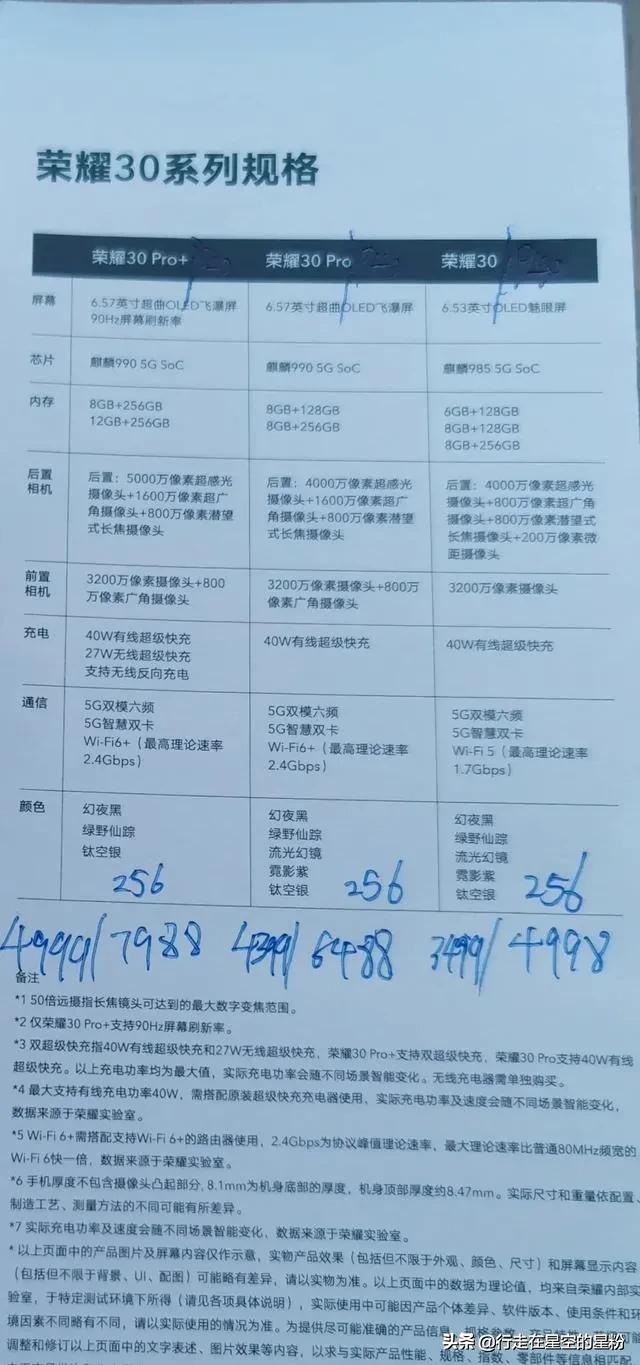 荣耀30系列规格
荣耀30 Pro+ 荣耀30 Pro 荣耀30
屏幕 6.57英寸超曲OLED飞瀑屏 6.57英寸超曲OLED飞瀑屏 6.53英寸OLED魅眼屏
90Hz屏幕刷新率
芯片 麒麟990 5G SoC 麒麟990 5G SoC 麒麟985 5G SoC
内存 8GB+256GB 8GB+128GB 6GB+128GB
12GB+256GB 8GB+256GB 8GB+128GB
8GB+256GB
后置 后置：5000万像素超感光 后置：4000万像素超感光 后置：4000万像素超感光
相机 摄像头+1600万像素超广 摄像头+1600万像素超广 摄像头+800万像素超广角
角摄像头+800万像素潜望 角摄像头+800万像素潜望 摄像头+800万像素潜望式
式长焦摄像头 式长焦摄像头 长焦摄像头+200万像素微
距摄像头
前置 3200万像素摄像头+800 3200万像素摄像头+800万 3200万像素摄像头
相机 万像素广角摄像头 像素广角摄像头
充电 40W有线超级快充 40W有线超级快充 40W有线超级快充
27W无线超级快充
支持无线反向充电
通信 5G双模六频 5G双模六频 5G双模六频
5G智慧双卡 5G智慧双卡 5G智慧双卡
Wi-Fi6+（最高理论速率 Wi-Fi6+（最高理论速率 Wi-Fi 5（最高理论速率
2.4Gbps） 2.4Gbps） 1.7Gbps）
颜色 幻夜黑 幻夜黑 幻夜黑
绿野仙踪 绿野仙踪 绿野仙踪
钛空银 流光幻镜 流光幻镜
霓影紫 霓影紫
钛空银 钛空银
256 256 256
4999/7988 4399/6488 3499/4998
备注
*1 50倍远摄指长焦镜头可达到的最大数字变焦范围。
*2 仅荣耀30 Pro+支持90Hz屏幕刷新率。
*3 双超级快充指40W有线超级快充和27W无线超级快充，荣耀30 Pro+支持双超级快充，荣耀30 Pro支持40W有线
超级快充。以上充电功率均为最大值，实际充电功率会随不同场景智能变化。无线充电器需单独购买。
*4 最大支持有线充电功率40W，需搭配原装超级快充充电器使用，实际充电功率及速度会随不同场景智能变化，
数据来源于荣耀实验室。
*5 Wi-Fi 6+需搭配支持Wi-Fi 6+的路由器使用，2.4Gbps为协议峰值理论速率，最大理论速率比普通80MHz频宽的
Wi-Fi 6快一倍，数据来源于荣耀实验室。
*6 手机厚度不包含摄像头凸起部分，8.1mm为机身底部的厚度，机身顶部厚度约8.47mm。实际尺寸和重量依配置、
制造工艺、测量方法的不同可能有所差异。
*7 实际充电功率及速度会随不同场景智能变化，数据来源于荣耀实验室。
* 以上页面中的产品图片及屏幕内容仅作示意，实物产品效果（包括但不限于外观、颜色、尺寸）和屏幕显示内容
（包括但不限于背景、UI、配图）可能略有差异，请以实物为准。以上页面中的数据为理论值，均来自荣耀内部实
验室，于特定测试环境下所得（请见各项具体说明），实际使用中可能因产品个体差异、软件版本、使用条件和环
境因素不同略有不同，请以实际使用的情况为准。为提供尽可能准确的产品信息、规格参数、
调整和修订以上页面中的文字表述、图片效果等内容，以求与实际产品性能、规格、指数、零部件等信息相匹配
头条 @行走在星空的星粉